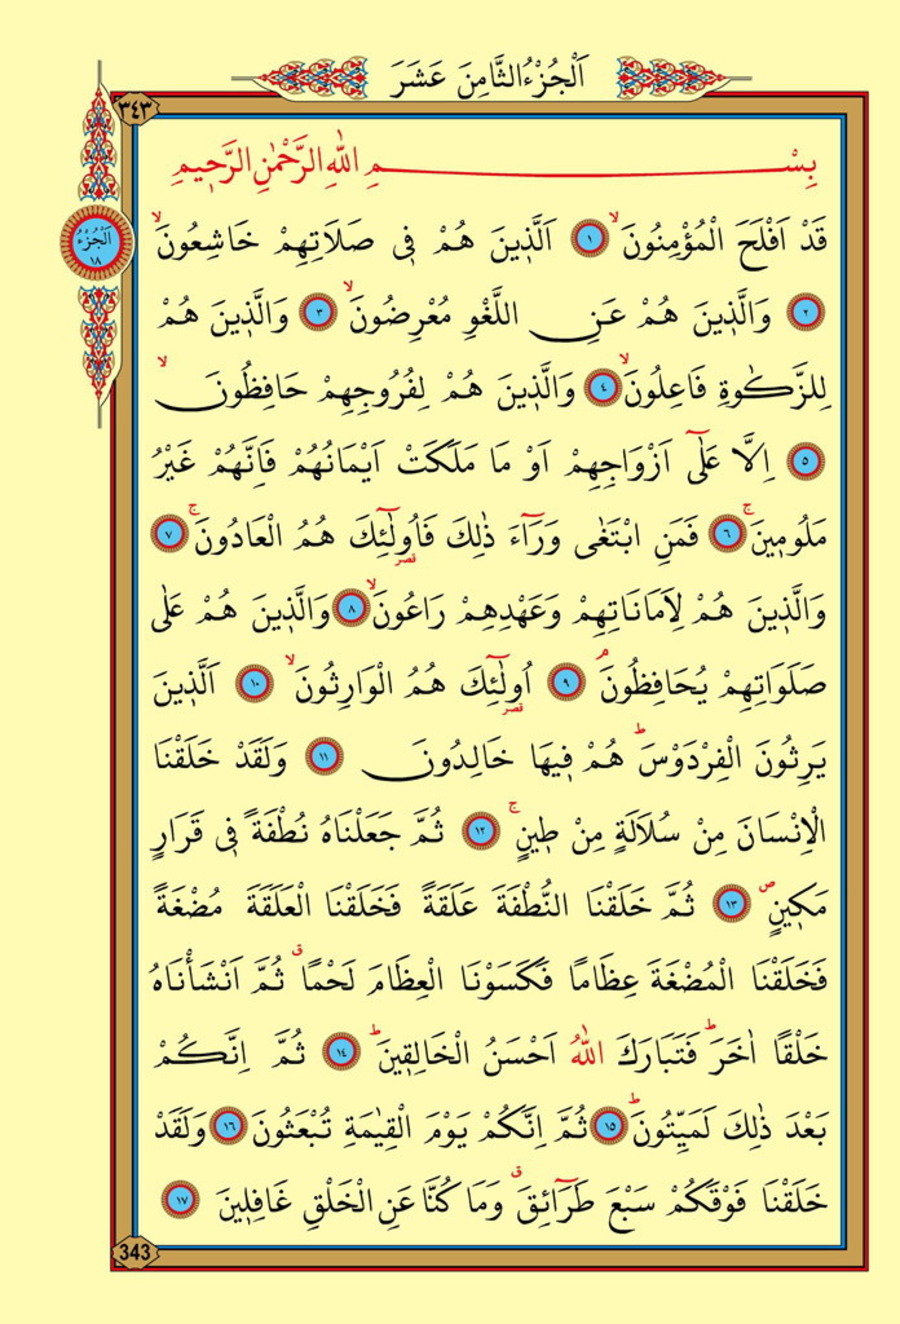 اَلْجُزْءُ الثَّامِنَ عَشَرَ
٣٤٣
اَلْجُزْءُ
١٨
بِسْمِ اللّٰهِ الرَّحْمٰنِ الرَّحٖيمِ
قَدْ اَفْلَحَ الْمُؤْمِنُونَۙ ١ اَلَّذٖينَ هُمْ فٖى صَلَاتِهِمْ خَاشِعُونَۙ
٢ وَالَّذٖينَ هُمْ عَنِ اللَّغْوِ مُعْرِضُونَۙ ٣ وَالَّذٖينَ هُمْ
لِلزَّكٰوةِ فَاعِلُونَۙ ٤ وَالَّذٖينَ هُمْ لِفُرُوجِهِمْ حَافِظُونَۙ
٥ اِلَّا عَلٰٓى اَزْوَاجِهِمْ اَوْ مَا مَلَكَتْ اَيْمَانُهُمْ فَاِنَّهُمْ غَيْرُ
مَلُومٖينَۚ ٦ فَمَنِ ابْتَغٰى وَرَٓاءَ ذٰلِكَ فَاُو۬لٰٓئِكَ هُمُ الْعَادُونَۚ ٧
قصر
وَالَّذٖينَ هُمْ لِاَمَانَاتِهِمْ وَعَهْدِهِمْ رَاعُونَۙ ٨ وَالَّذٖينَ هُمْ عَلٰى
صَلَوَاتِهِمْ يُحَافِظُونَۘ ٩ اُو۬لٰٓئِكَ هُمُ الْوَارِثُونَۙ ١٠ اَلَّذٖينَ
قصر
يَرِثُونَ الْفِرْدَوْسَؕ هُمْ فٖيهَا خَالِدُونَ ١١ وَلَقَدْ خَلَقْنَا
الْاِنْسَانَ مِنْ سُلَالَةٍ مِنْ طٖينٍۚ ١٢ ثُمَّ جَعَلْنَاهُ نُطْفَةً فٖى قَرَارٍ
مَكٖينٍࣕ ١٣ ثُمَّ خَلَقْنَا النُّطْفَةَ عَلَقَةً فَخَلَقْنَا الْعَلَقَةَ مُضْغَةً
فَخَلَقْنَا الْمُضْغَةَ عِظَامًا فَكَسَوْنَا الْعِظَامَ لَحْمًاࣗ ثُمَّ اَنْشَاْنَاهُ
خَلْقًا اٰخَرَؕ فَتَبَارَكَ اللّٰهُ اَحْسَنُ الْخَالِقٖينَؕ ١٤ ثُمَّ اِنَّكُمْ
بَعْدَ ذٰلِكَ لَمَيِّتُونَؕ ١٥ ثُمَّ اِنَّكُمْ يَوْمَ الْقِيٰمَةِ تُبْعَثُونَ ١٦ وَلَقَدْ
خَلَقْنَا فَوْقَكُمْ سَبْعَ طَرَٓائِقَࣗ وَمَا كُنَّا عَنِ الْخَلْقِ غَافِلٖينَ ١٧
343